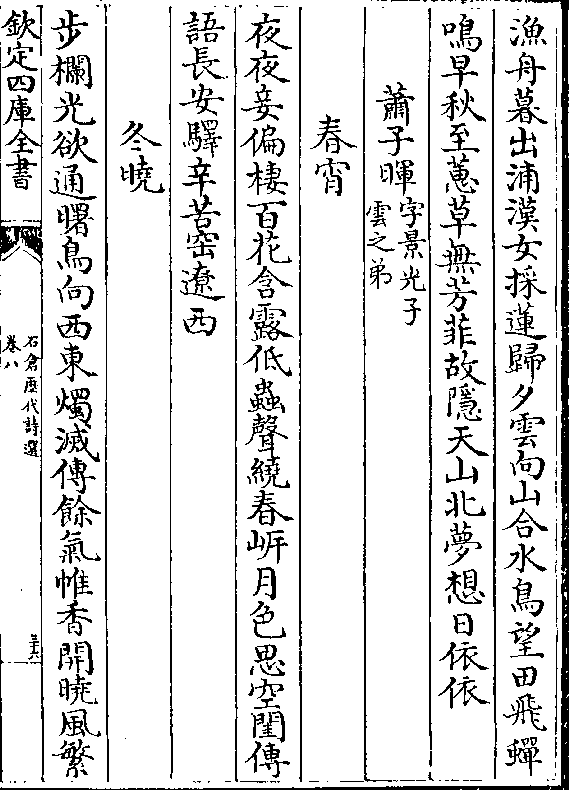 漁舟暮出浦漢女採蓮歸夕雲向山合水鳥望田飛蟬
鳴早秋至蕙草無芳菲故隱天山北夢想日依依
蕭子暉字景光子
雲之弟
春宵
夜夜妾偏棲百花含露低蟲聲繞春岍月色思空閨傳
語長安驛辛苦寄遼西
冬曉
步欄光欲通曙鳥向西東燭滅傳餘氣帷香開曉風繁
欽定四庫全書
石倉歷代詩選
卷八
三六